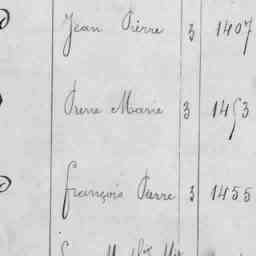 Jean Pierre 3 1407
Pierre Marie 3 1453
François Pierre 3 1455